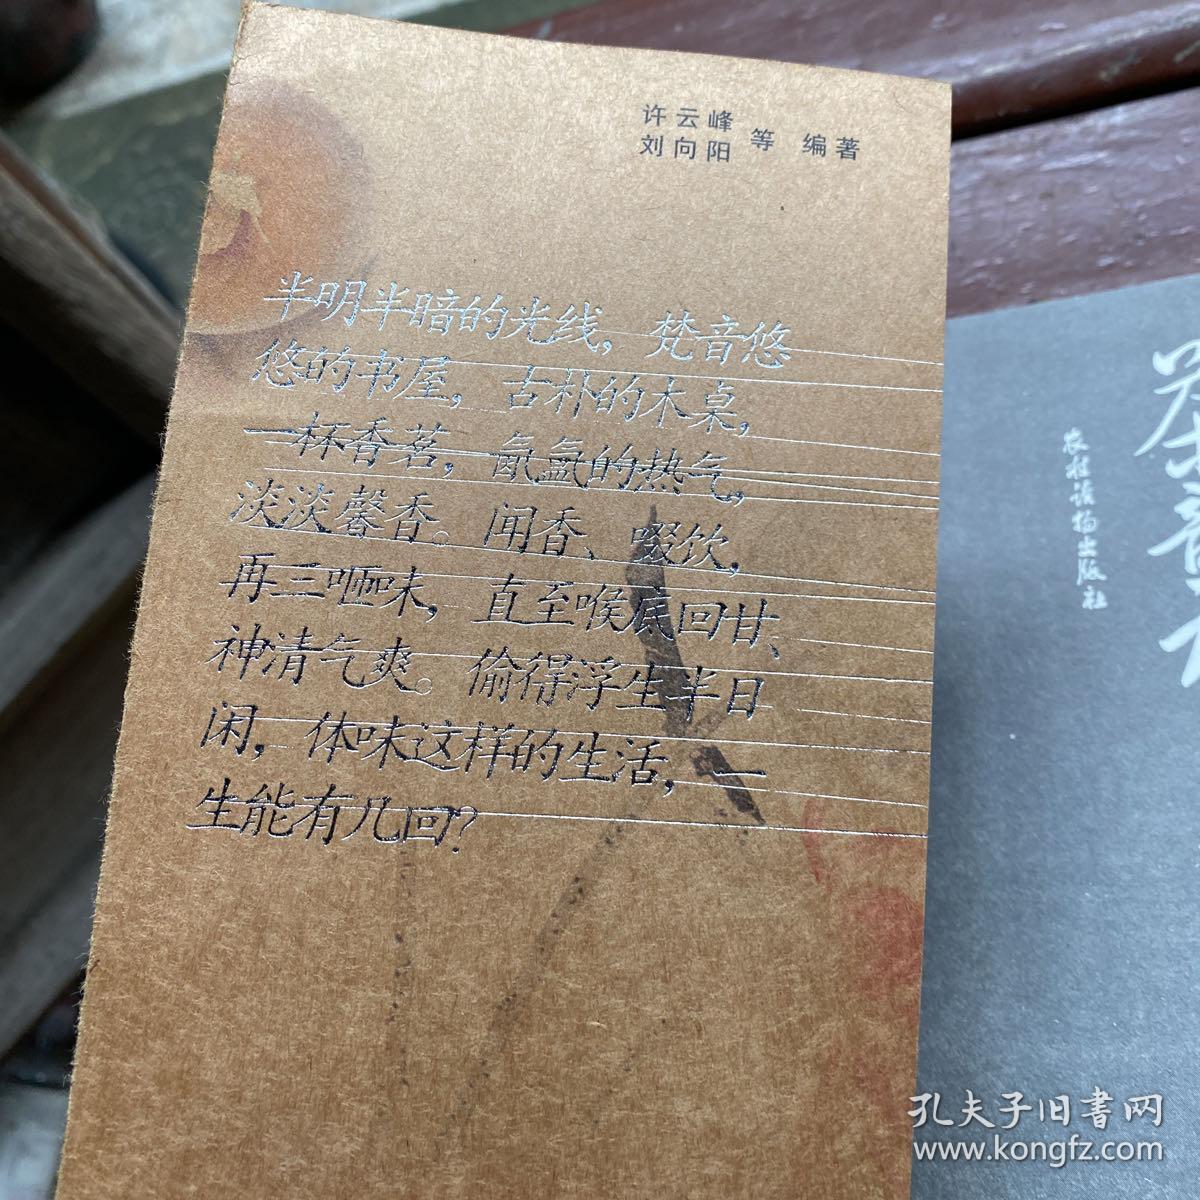 许云峰
刘向阳 等 编著
半明半暗的光线，梵音悠
悠的书屋，古朴的木桌，
一杯香茗，氤氲的热气，
淡淡馨香。闻香、啜饮，
再三咂味，直至喉底回甘、
神清气爽。偷得浮生半日
闲，体味这样的生活，一
生能有几回？
农村读物出版社
孔夫子旧书网
www.kongfz.com